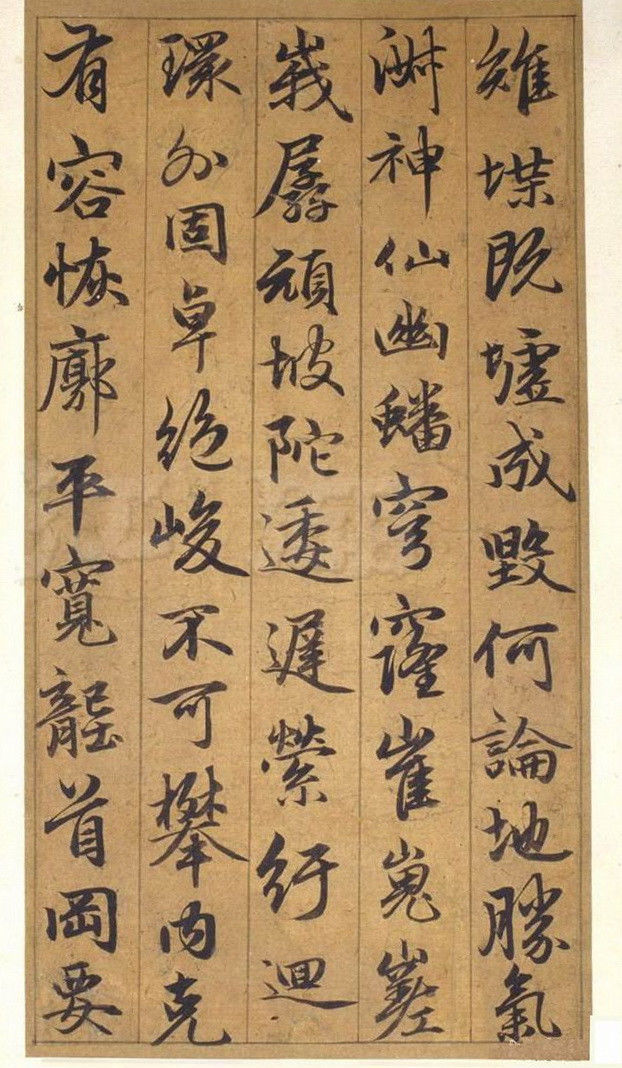 雉堞既墟成毀何論地勝氣
淋神仙幽蟠穹窿崔嵬嵯
峩孱頑坡陀逶遲縈紆迴
環外固卓絕峻不可攀內克
有容恢廓平寬龍首岡要